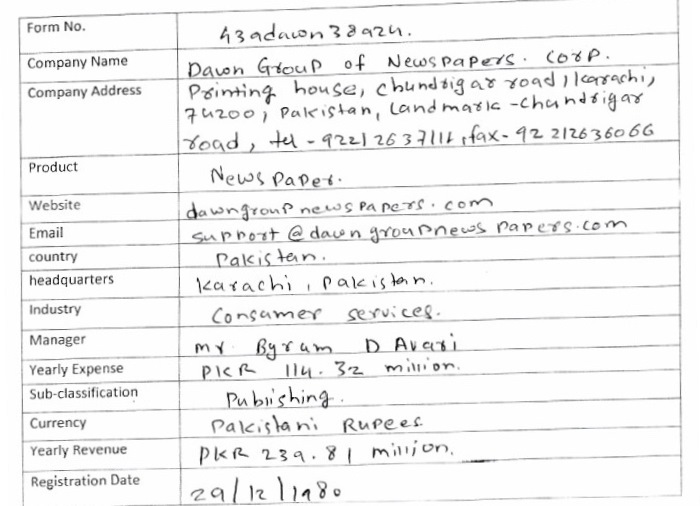 Form No. 43adawn38924.
Company Name Dawn Group of Newspapers. Corp.
Company Address Printing house, chundrigar road, karachi,
74200, Pakistan, Landmark - chundrigar
road, tel - 92212637111, fax - 92 212636066
Product Newspaper.
Website dawngroupnewspapers.com
Email support@dawngroupnewspapers.com
country Pakistan.
headquarters karachi, Pakistan.
Industry Consumer services.
Manager mr. Byram D Avari
Yearly Expense PKR 114.32 million.
Sub-classification Publishing.
Currency Pakistani Rupees
Yearly Revenue PKR 239.81 million.
Registration Date 29/12/1980